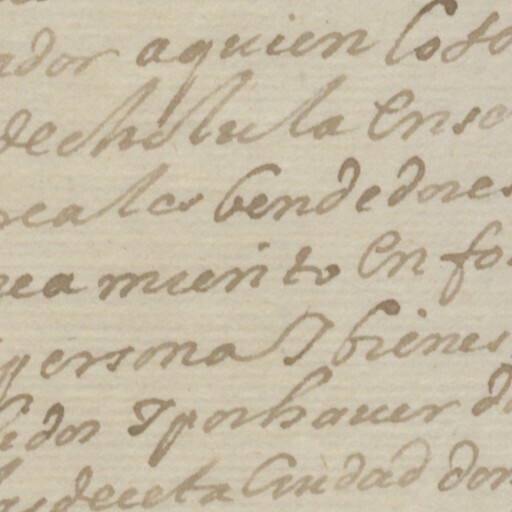 ador aquien loso
decholula Ense
reales bendedores
nea miento En fo
persona Y bienes
bidos Y por hauer d
deceta Ciudad don